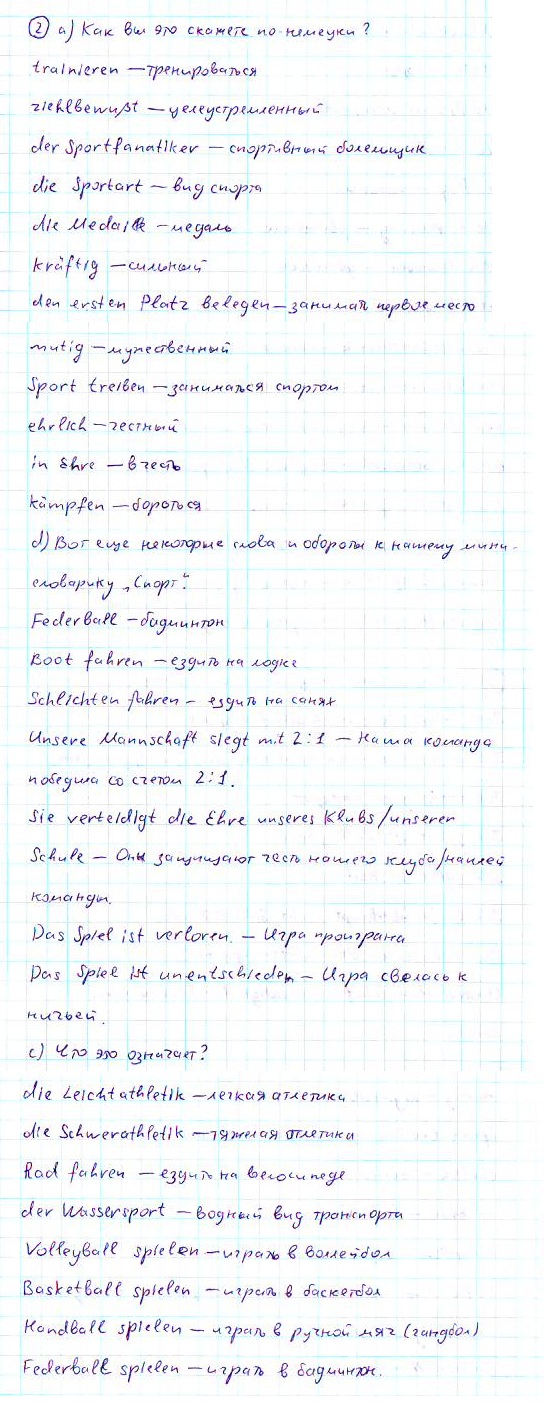 ② а) Как вы это скажете по-немецки?
trainieren — тренироваться
ziehlbewußt — целеустремленный
der Sportfanatiker — спортивный болельщик
die Sportart — вид спорта
die Medaille — медаль
kräftig — сильный
den ersten Platz belegen — занимать первое место
mutig — мужественный
Sport treiben — заниматься спортом
ehrlich — честный
in Ehre — в честь
kämpfen — бороться
d) Вот еще некоторые слова и обороты к нашему мини-
словарику „Спорт“.
Federball — бадминтон
Boot fahren — ездить на лодке
Schlichten fahren — ездить на санях
Unsere Mannschaft siegt mit 2:1 — Наша команда
победила со счетом 2:1.
Sie verteidigt die Ehre unseres Klubs/unserer
Schule — Они защищают честь нашего клуба/нашей
команды.
Das Spiel ist verloren. — Игра проиграна
Das Spiel ist unentschieden — Игра свелась к
ничьей.
c) Что это означает?
die Leichtathletik — легкая атлетика
die Schwerathletik — тяжелая атлетика
Rad fahren — ездить на велосипеде
der Wassersport — водный вид транспорта
Volleyball spielen — играть в волейбол
Basketball spielen — играть в баскетбол
Handball spielen — играть в ручной мяч (гандбол)
Federball spielen — играть в бадминтон.